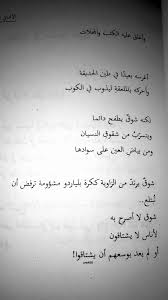 وأغلق عليه الكتب والمجلات
أغرسه بعيدًا في طين الحديقة
وأحركه بالملعقة ليذوب في الكوب
لكنه شوق يطفح دائما
ويتسرّب من شقوق النسيان
ومن بياض العين على سوادها
شوق يرتدّ من الزاوية ككرة بلياردو مشؤومة ترفض أن
تُبتلع..
شوق لا أصرح به
لأناس لا يشتاقون
أو لم يعد بوسعهم أن يشتاقوا!